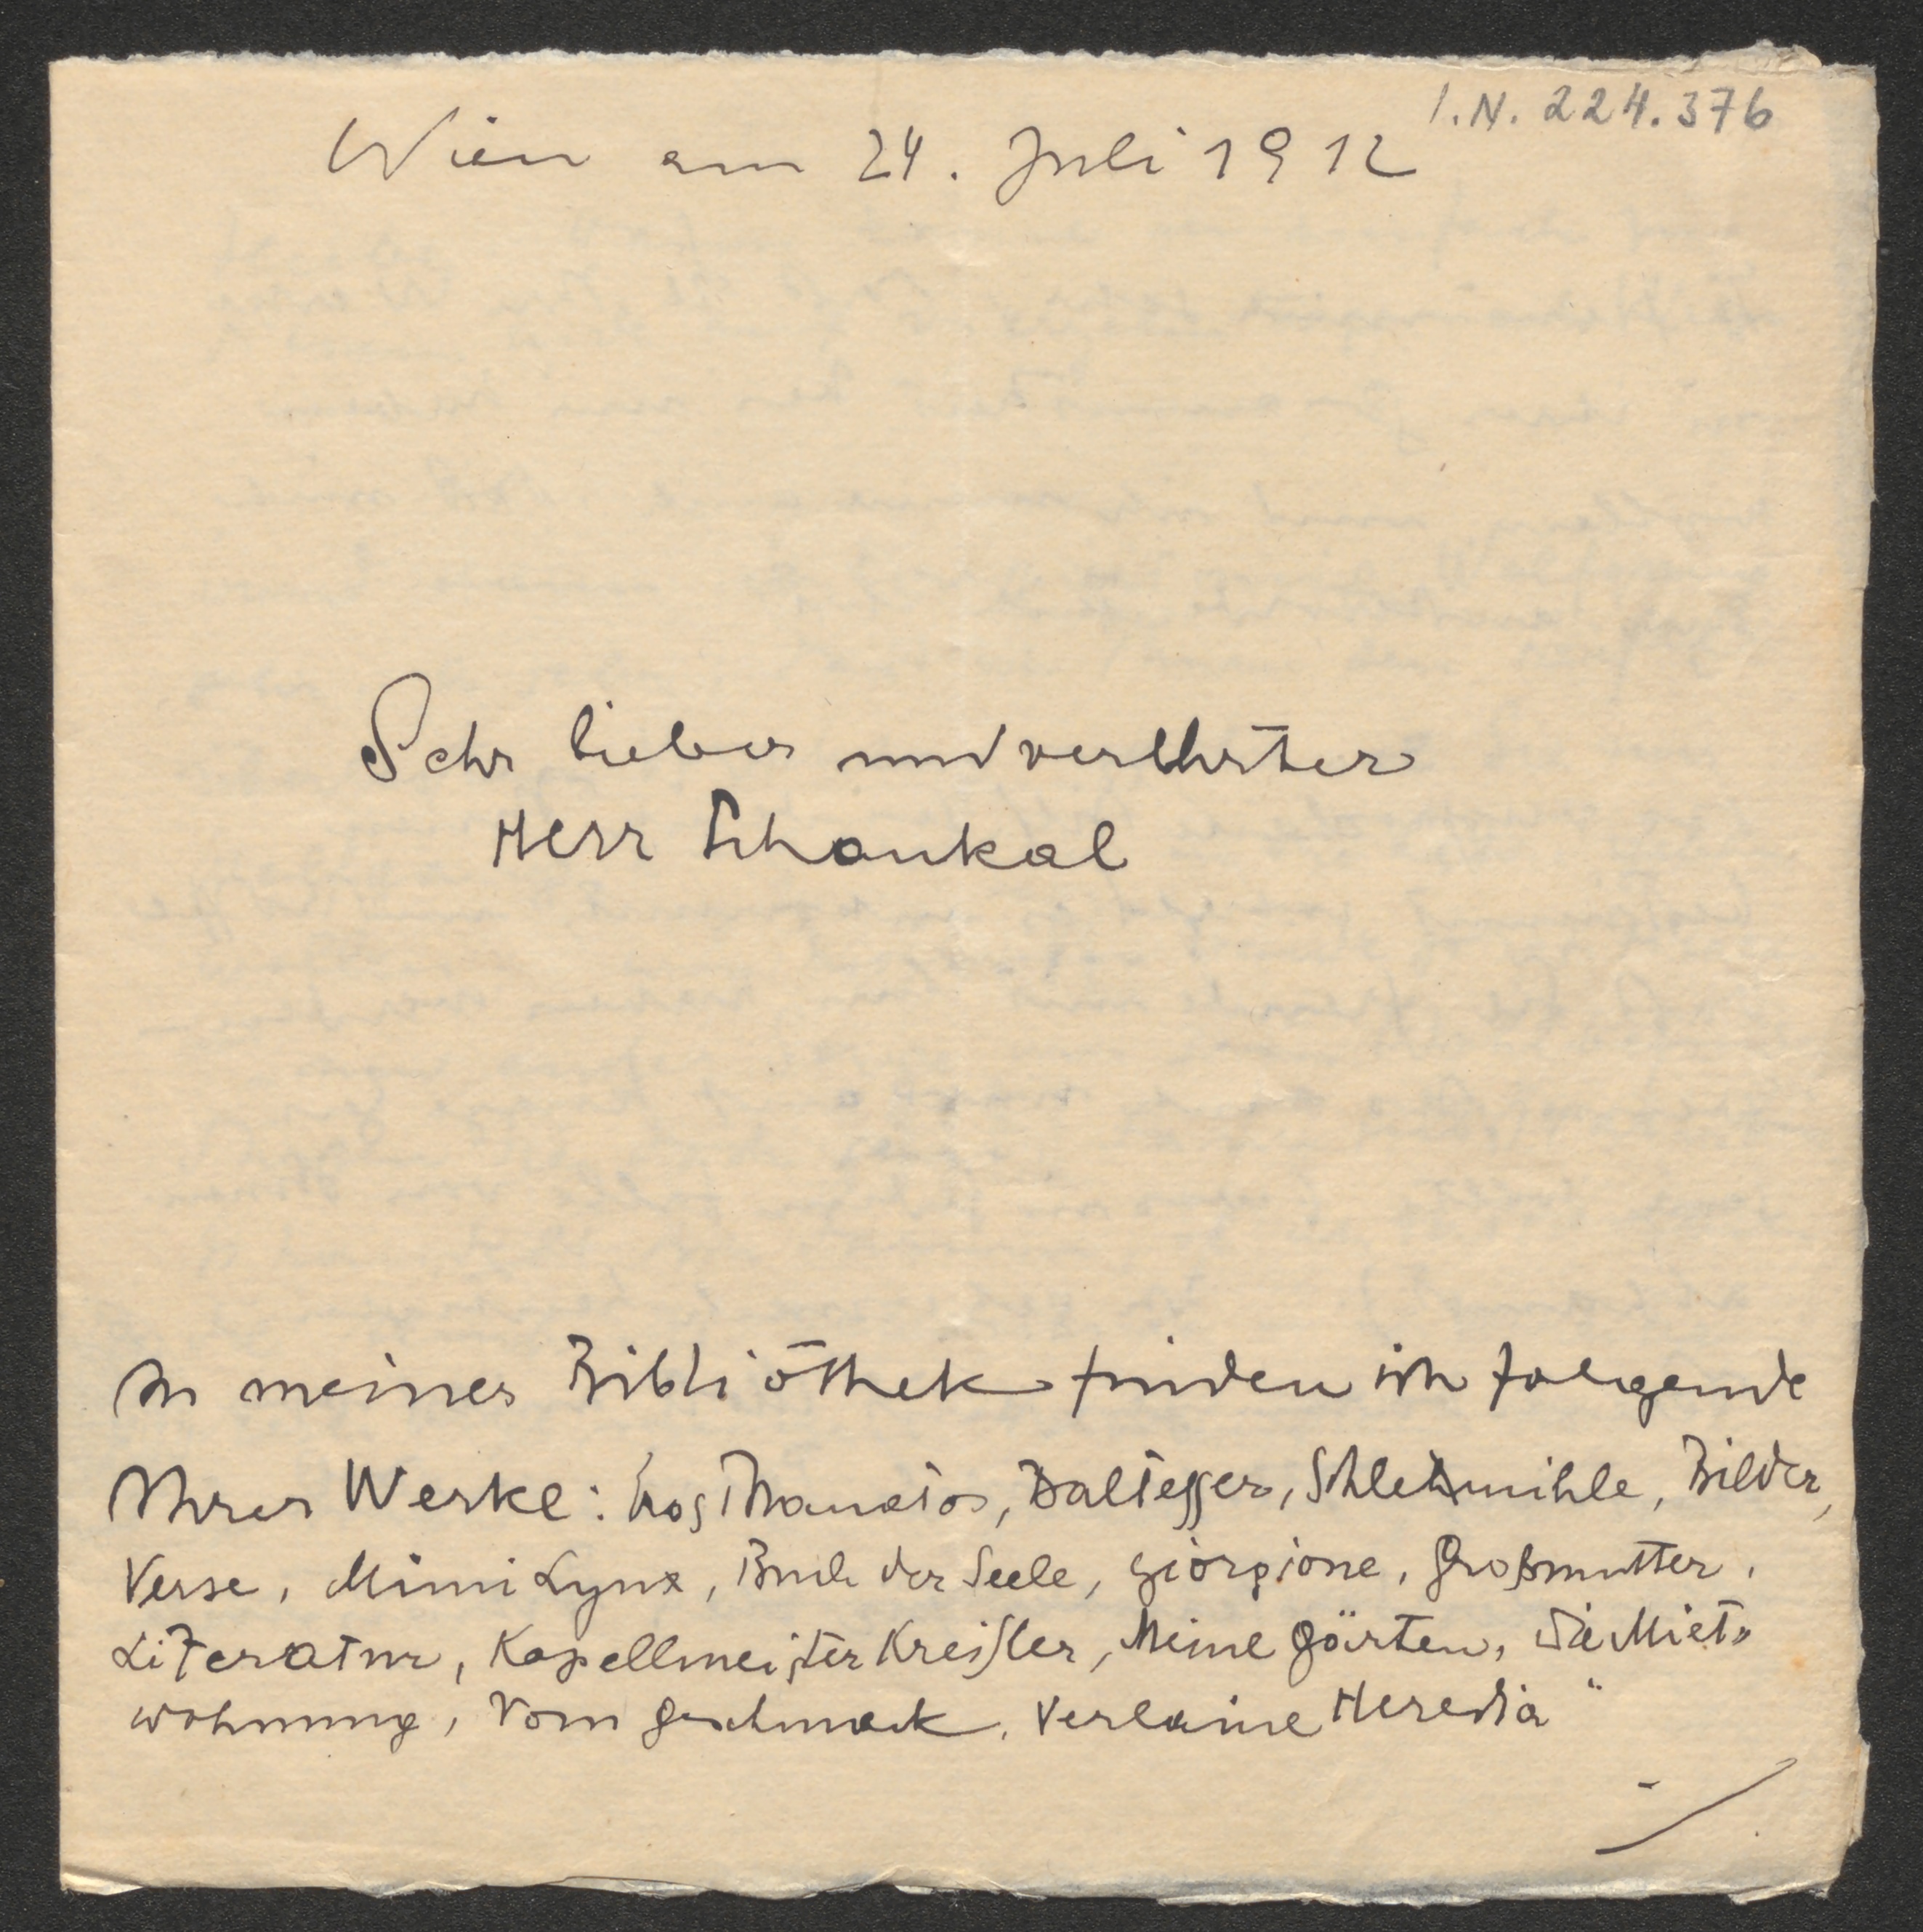 I.N. 224.376
Wien am 24. Juli 1912
Sehr lieber und verehrter
Herr Schaukal
In meiner Bibliothek finden ich folgende
Ihrer Werke: Eros Thanatos, Baltesser, Schlemihle, Bilder,
Verse, Mimi Lynx, Buch der Seele, Giorgione, Großmutter,
Literatur, Kapellmeister Kreisler, Meine Gärten, Die Miet-
wohnung, Vom Geschmack, Verlaine Heredia"